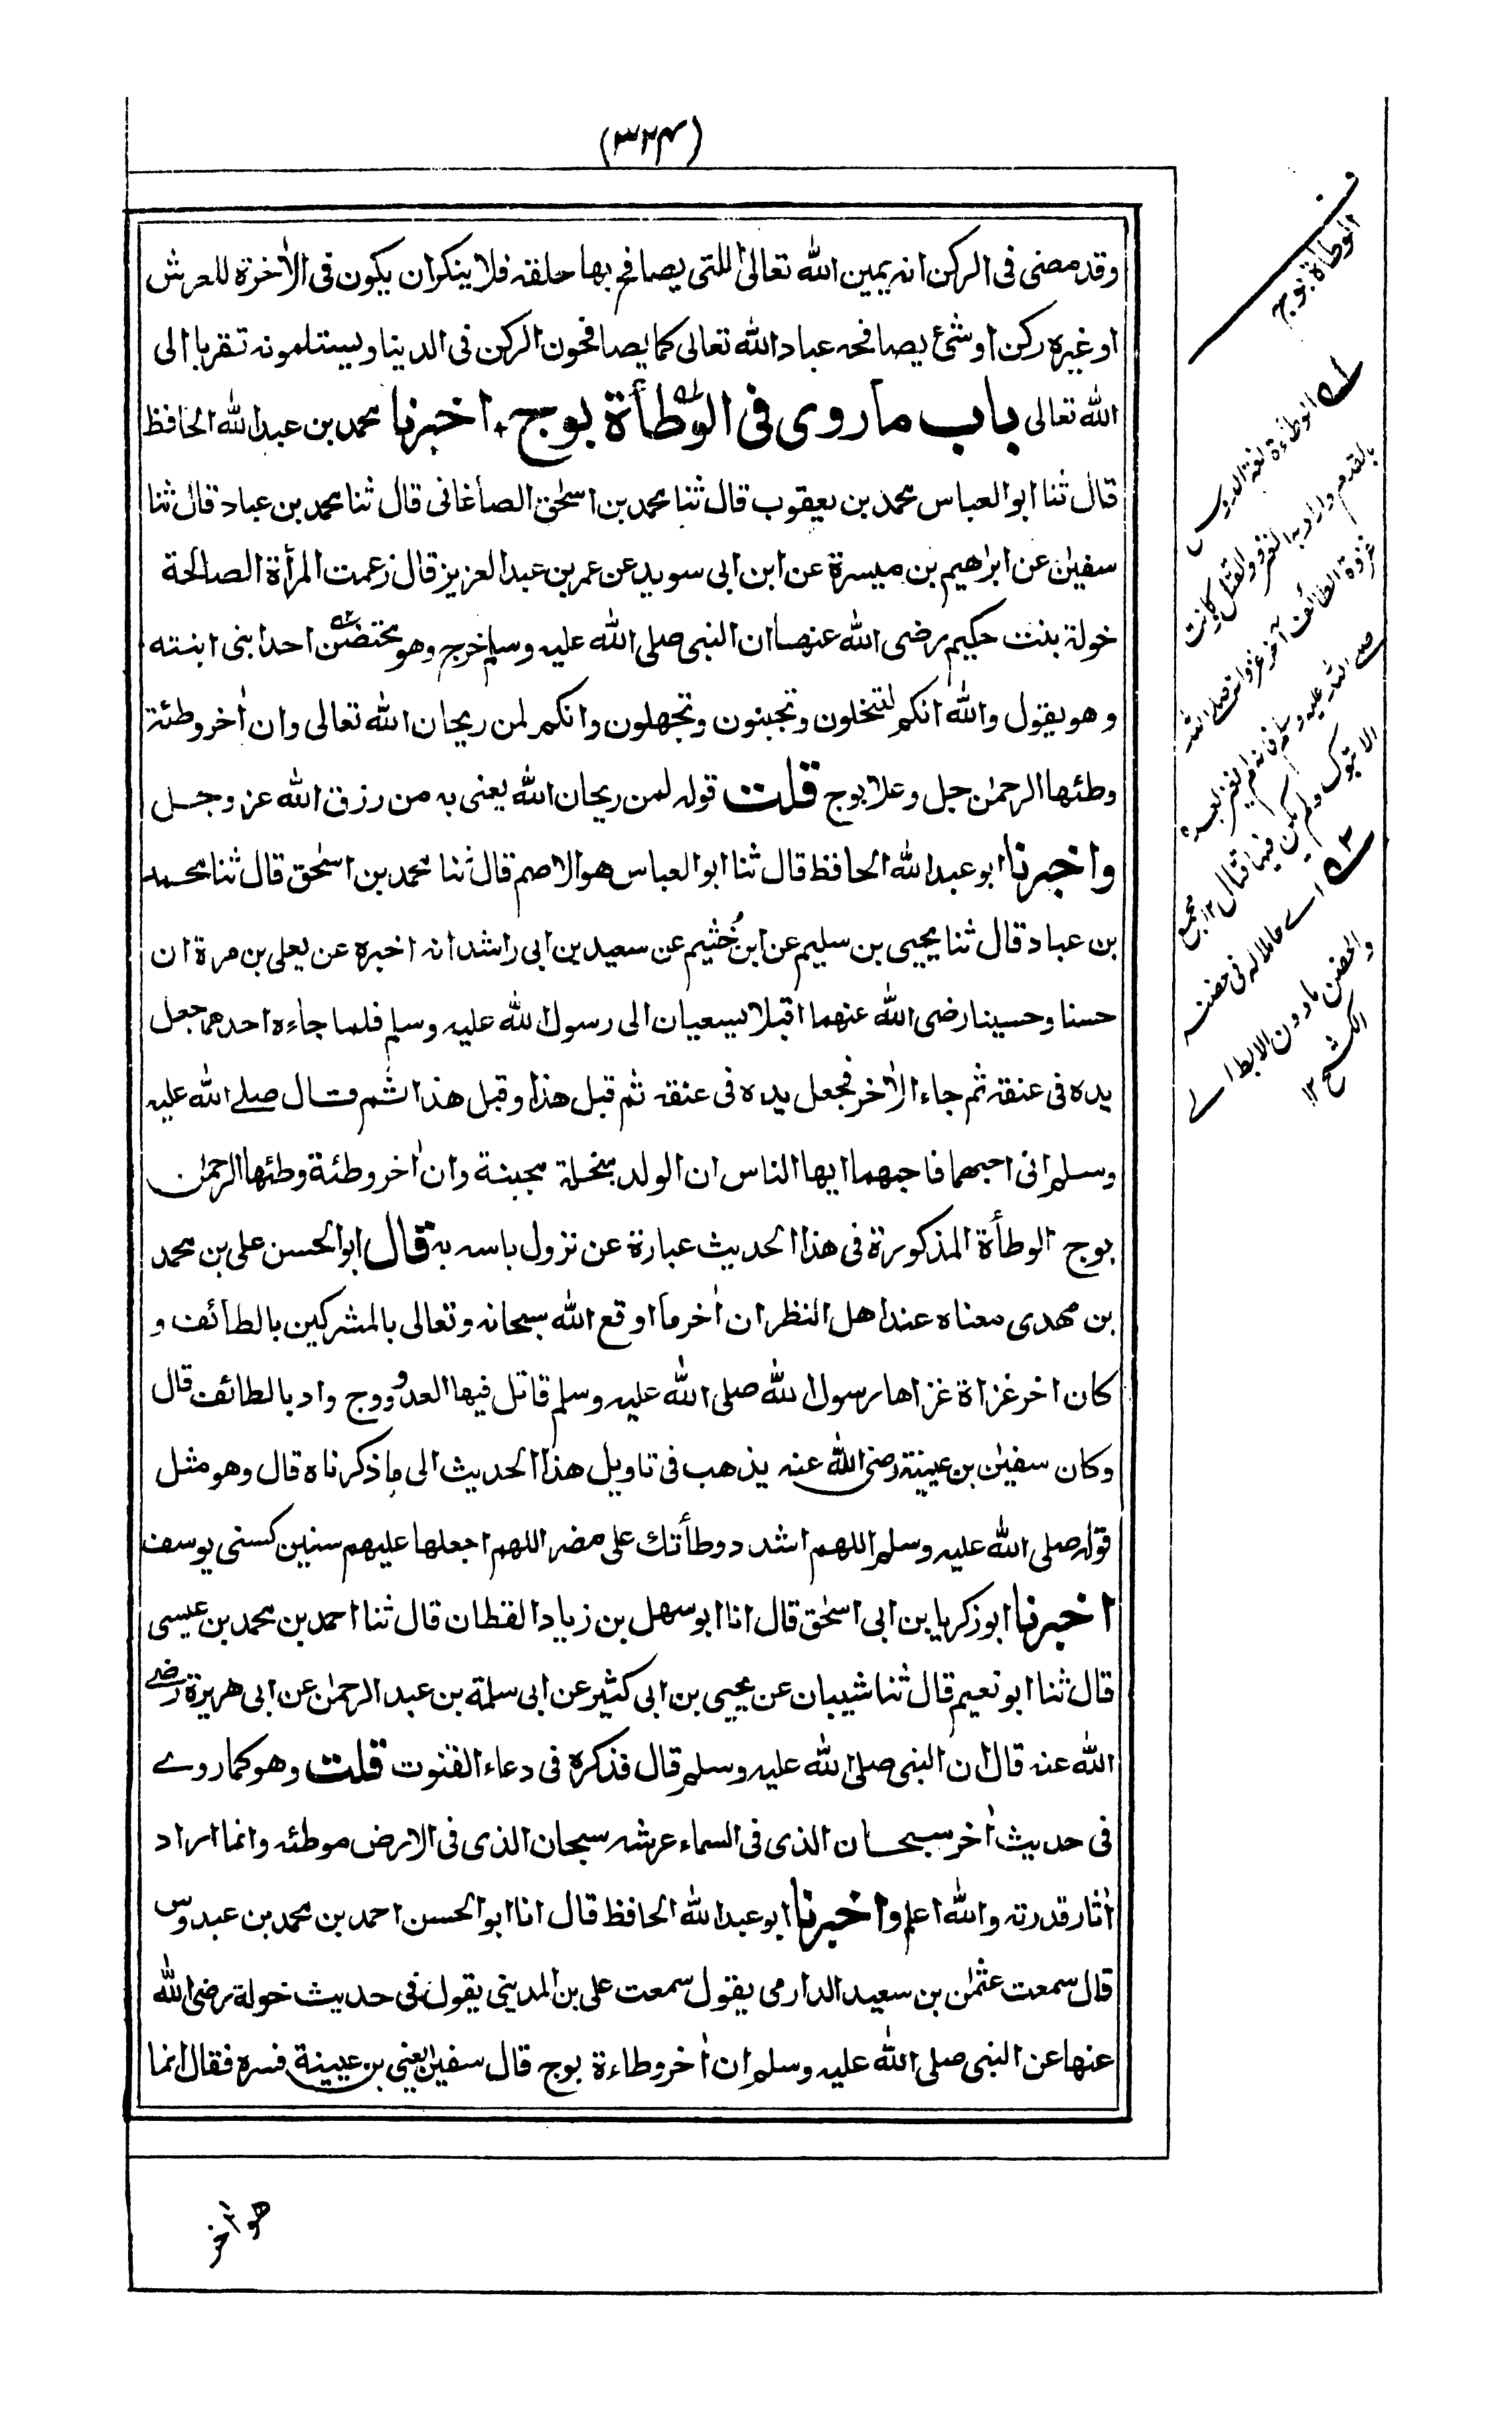 (٣٢٤)
وقد مضى فى الركن انه يمين الله تعالىٰ اللتى يصافح بها خلقه فلا ينكر ان يكون فى الاٰخرة للعرش
او غيره ركن او شئ يصافحه عباد الله تعالى كما يصافحون الركن فى الدينا ويستلمونه تقربا الى
الله تعالى باب ما روى فى الوطأة بوج ، اخبرنا محمد بن عبد الله الحافظ
قال ثنا ابو العباس محمد بن يعقوب قال ثنا محمد بن اسحٰق الصاغانى قال ثنا محمد بن عباد قال ثنا
سفيٰن عن ابرٰهيم بن ميسرة عن ابن ابى سويد عن عمر بن عبد العزيز قال زعمت المرأة الصالحة
خولة بنت حكيم رضى الله عنها ان النبى صلى الله عليه وسلم خرج وهو مختضن احد ابنى ابنته
وهو يقول والله انكم لتبخلون وتجبنون وتجهلون وانكم لمن ريحان الله تعالى وان اٰخر وطئة
وطئها الرحمٰن جل وعلا بوج قلت قوله لمن ريحان الله يعنى به من رزق الله عز وجل
واخبرنا ابو عبد الله الحافظ قال ثنا ابو العباس هو الاصم قال ثنا محمد بن اسحٰق قال ثنا محمد
بن عباد قال ثنا يحيى بن سليم عن ابن خُثيم عن سعيد بن ابى راشد انه اخبره عن يعلى بن مرة ان
حسنا وحسينا رضى الله عنهما اقبلا يسعيان الى رسول الله عليه وسلم فلما جاءه احدهما جعل
يده فى عنقه ثم جاء الاٰخر فجعل يده فى عنقه ثم قبل هذا وقبل هذا ثم قال صلے الله عليه
وسلم انى احبهما فاحبهما ايها الناس ان الولد مبخلة مجبنة وان اٰخر وطئة وطئها الرحمٰن
بوج الوطأة المذكورة فى هذا الحديث عبارة عن نزول باسه به قال ابو الحسن على بن محمد
بن مهدى معناه عند اهل النظر ان اٰخر ما اوقع الله سبحانه وتعالى بالمشركين بالطائف و
كان اخر غزاة غزاها رسول الله صلى الله عليه وسلم قاتل فيها العدو ووج واد بالطائف قال
وكان سفيٰن بن عيينة رضى الله عنه يذهب فى تاويل هذا الحديث الى ما ذكرناه قال وهو مثل
قوله صلى الله عليه وسلم اللهم اشدد وطأتك على مضر اللهم اجعلها عليهم سنين كسنى يوسف
اخبرنا ابو زكريا بن ابى اسحٰق قال انا ابو سهل بن زياد القطان قال ثنا احمد بن محمد بن عيسى
قال ثنا ابو نعيم قال ثنا شيبان عن يحيى بن ابى كثير عن ابى سلمة بن عبد الرحمٰن عن ابى هريرة رضے
الله عنه قال ان النبى صلى الله عليه وسلم قال فذكره فى دعاء القنوت قلت وهو كما روے
فى حديث اٰخر سبحان الذى فى السماء عرشه سبحان الذى فى الارض موطئه وانما اراد
اٰثار قدرته والله اعلم واخبرنا ابو عبد الله الحافظ قال انا ابو الحسن احمد بن محمد بن عبدوس
قال سمعت عثمٰن بن سعيد الدارمى يقول سمعت على بن المدينى يقول فى حديث خولة رضى الله
عنها عن النبى صلى الله عليه وسلم ان اٰخر وطاءة بوج قال سفيٰن يعني بن عيينة فسره فقال انما
هو اٰخر
الوطأة بوج
الوطاءة لغة الدوس
بالقدم واراد به الغزو والقتل وكانت
غزوة الطائف آخر غزواته صلے الله
صلے الله عليه وسلم فانه لم يغز بعده
الا تبوك ولم يكن فيها قتال ١٢ مجمع
٢ اے حاملا له فى حضنه
والحضن ما دون الابط اے
الكشح ١٢